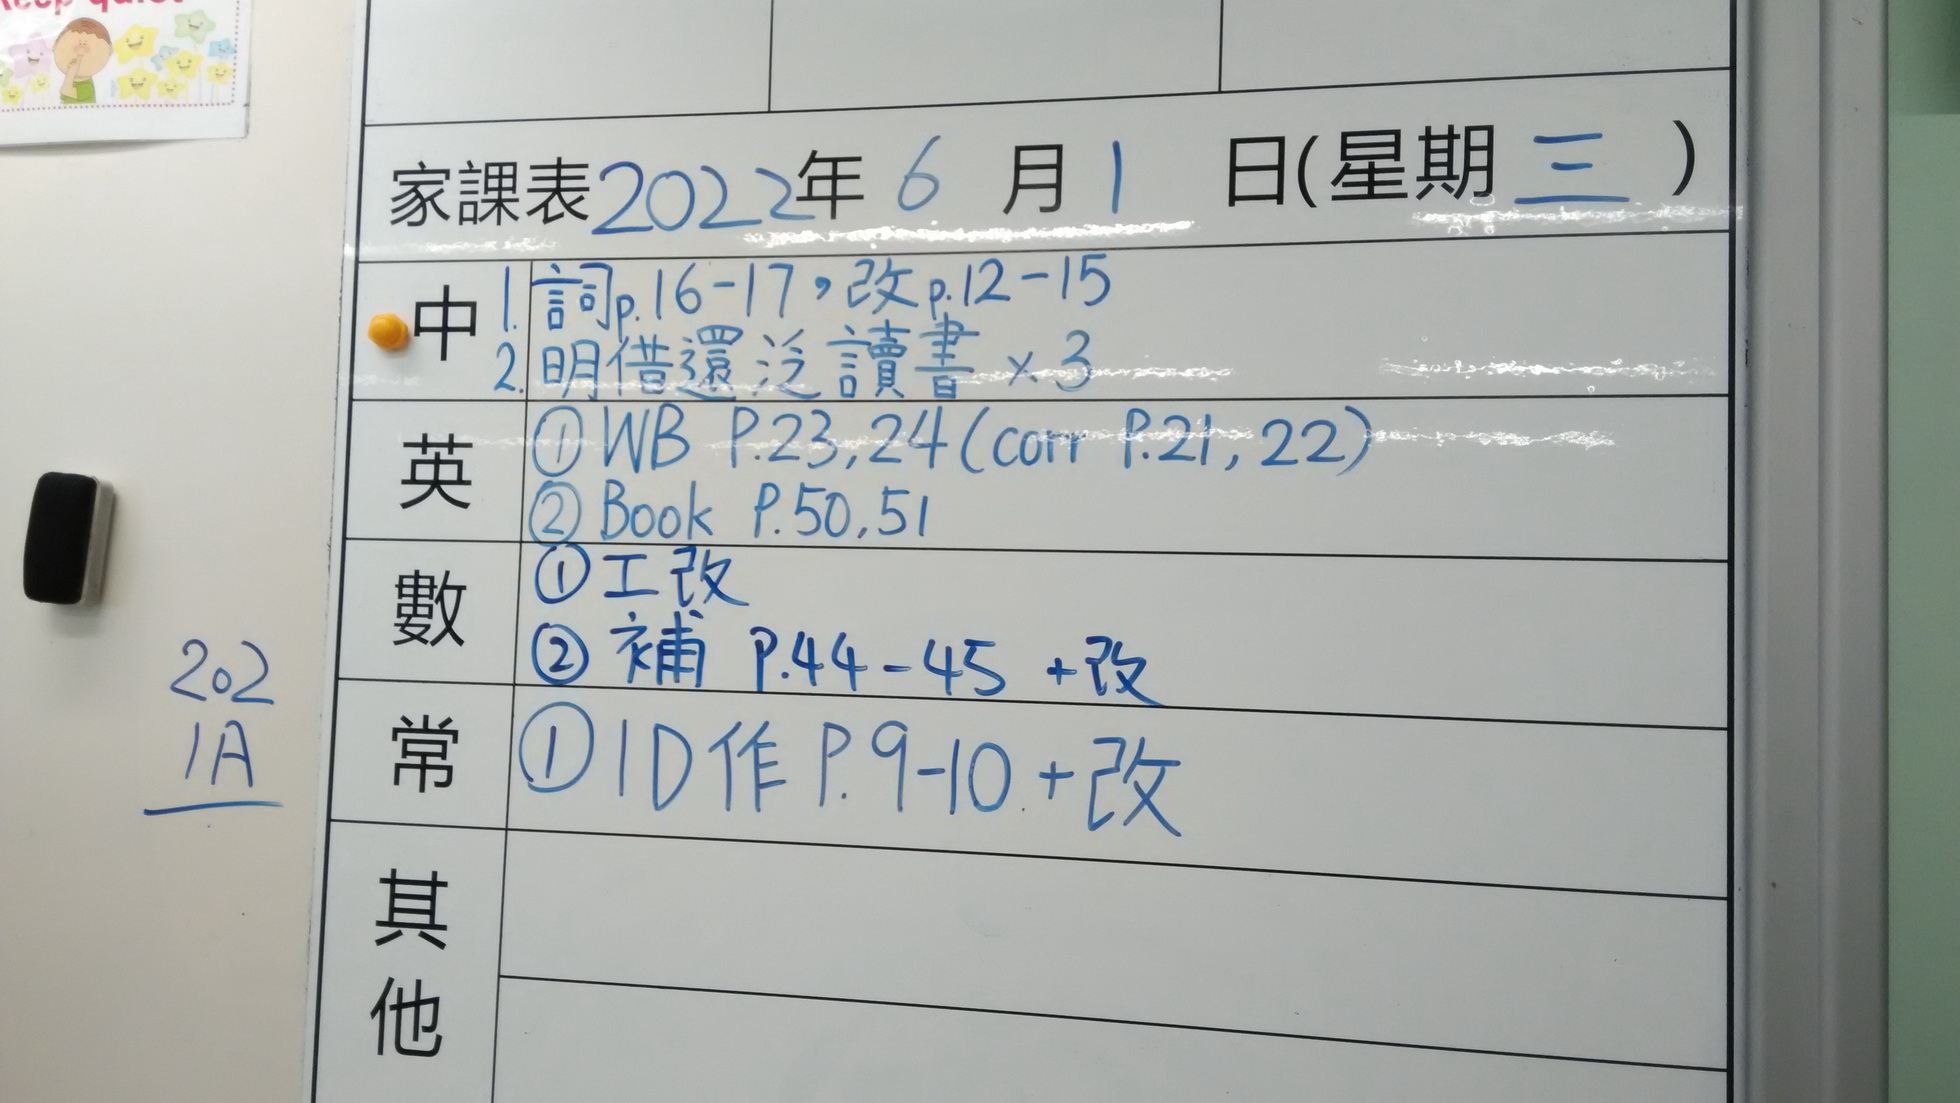 Keep quiet
家課表2022年 6 月 1 日(星期 三 )
中 1. 詞p.16-17,改p.12-15
2. 明借還泛讀書 x 3
英 ① WB P.23,24 (corr P.21, 22)
② Book P.50,51
數 ① 工改
② 補 P.44-45 +改
常 ① 1D作 P.9-10 +改
其他
202
1A